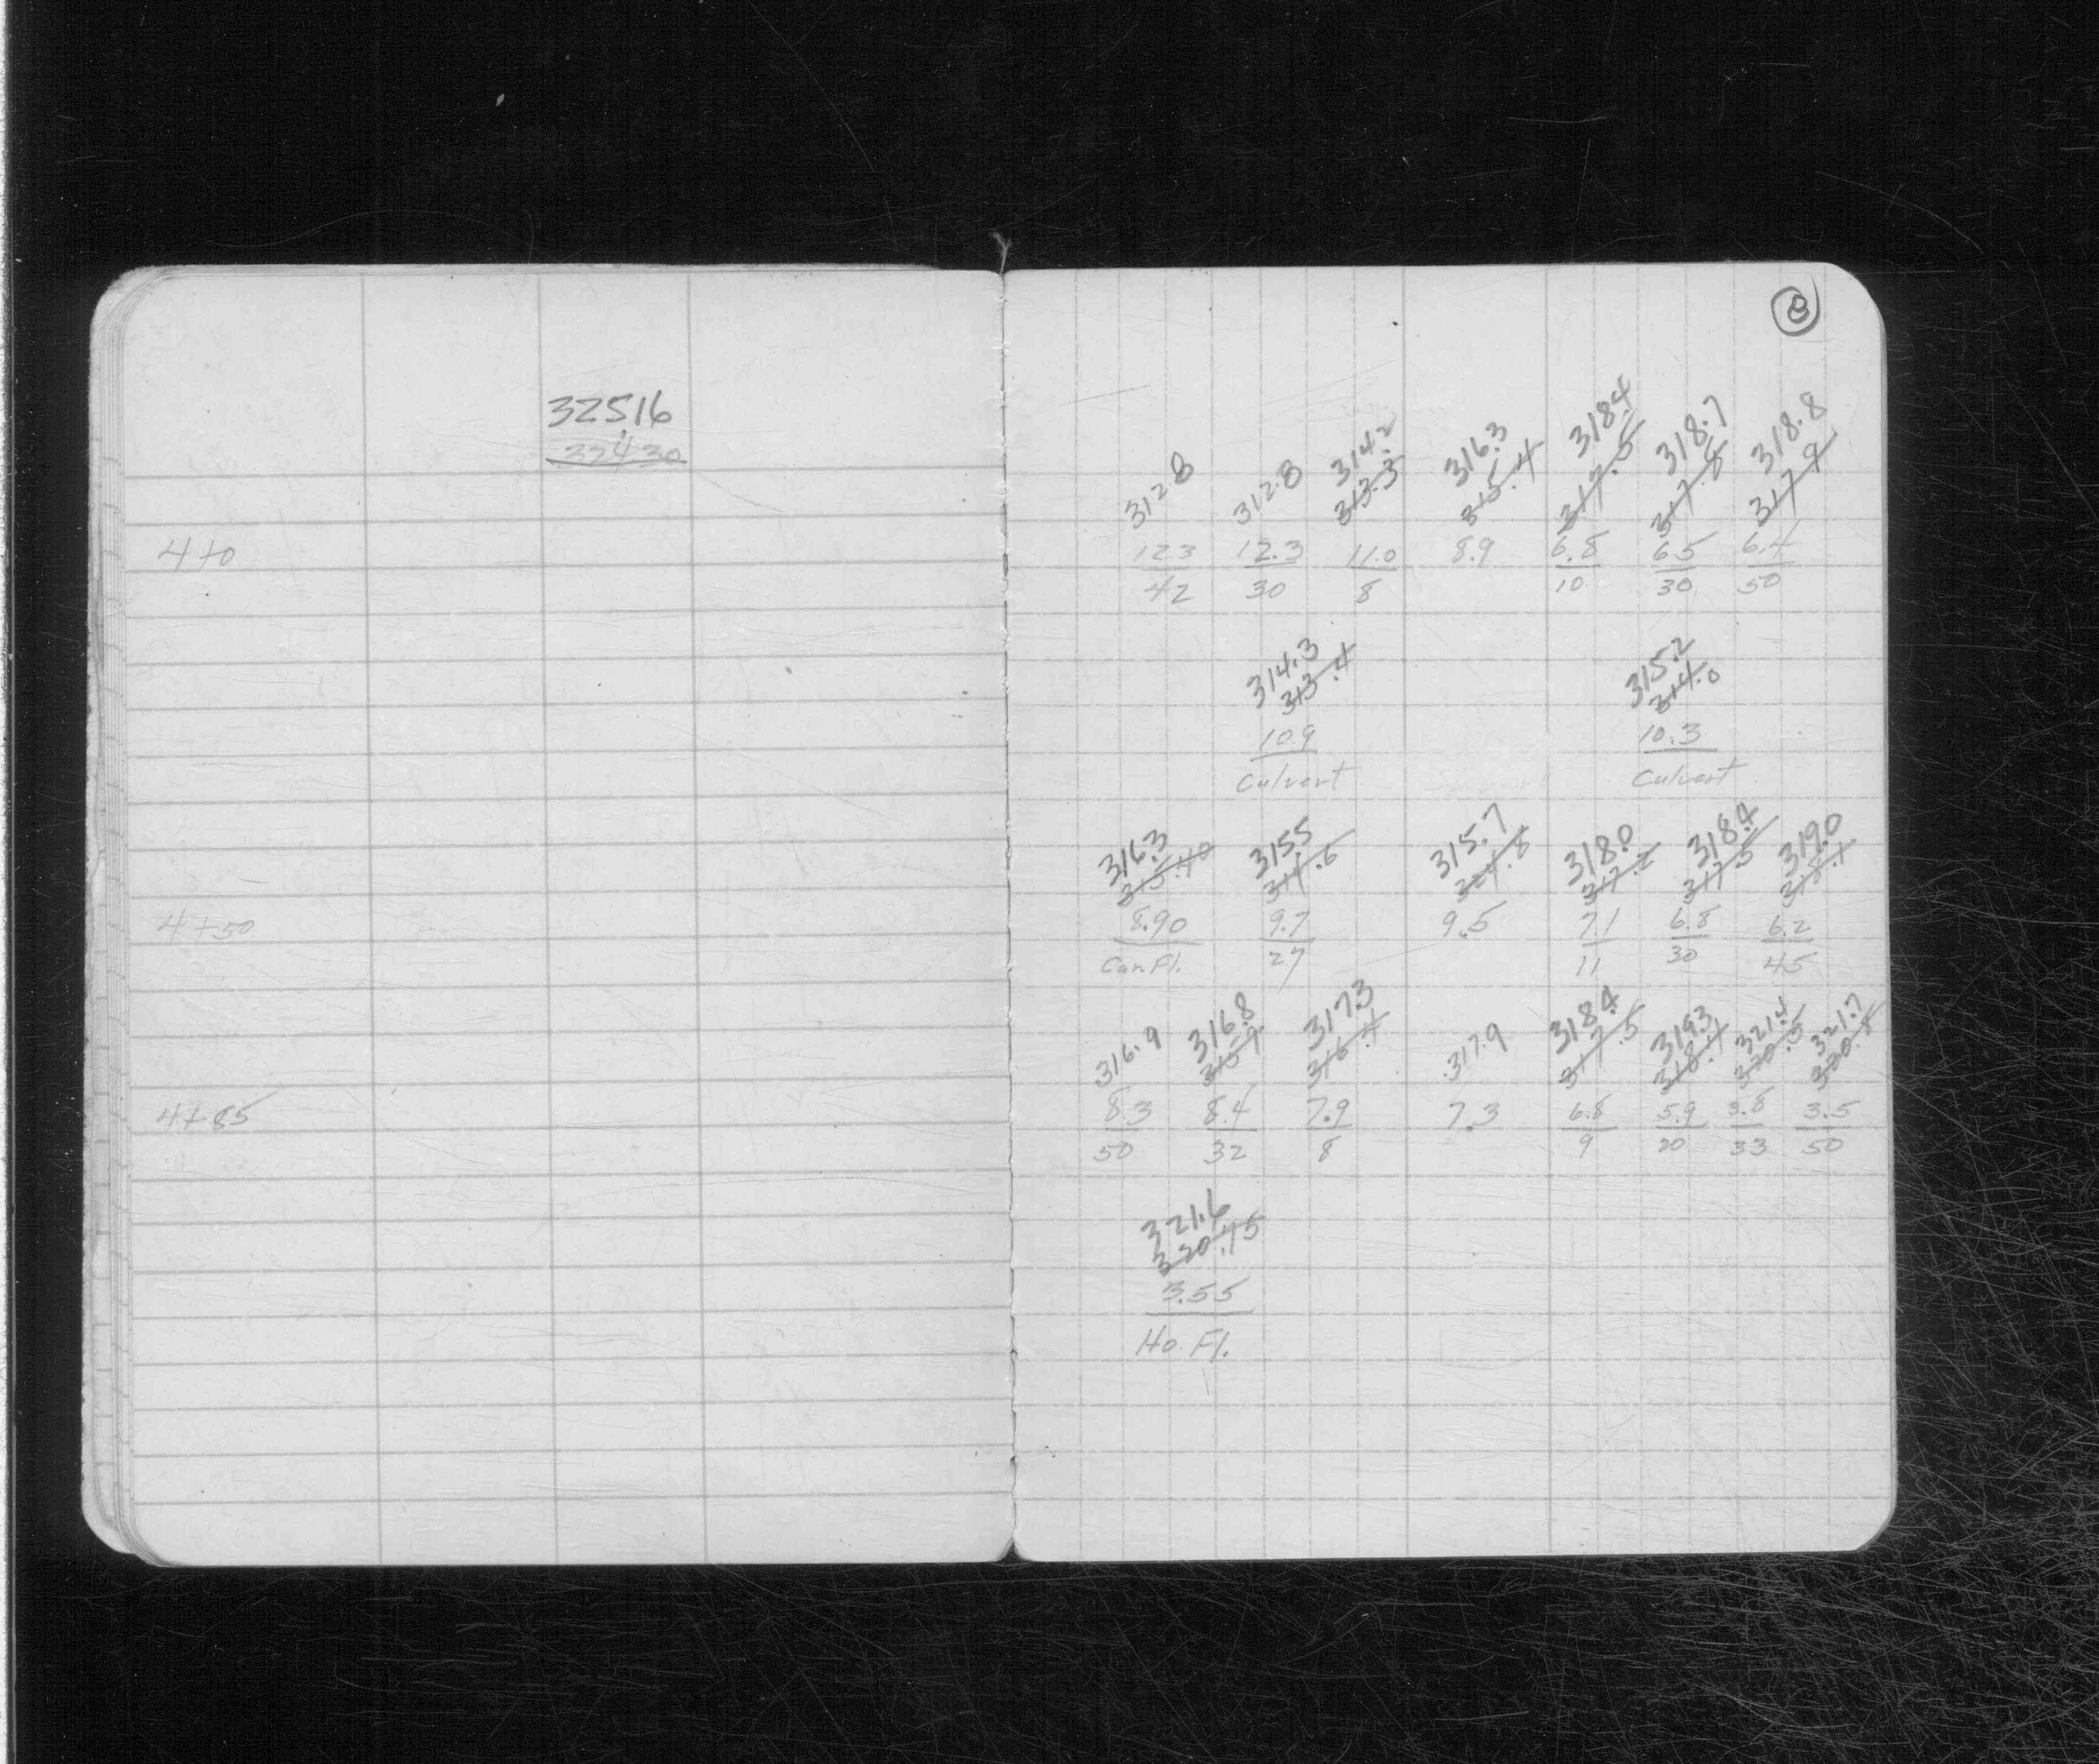 3
32516
32430
312.8 312.8 314.2 316.3 318.4 318.7 318.8
313.3 315.4 317.5 317.8 317.9
4+0 12.3 12.3 11.0 8.9 6.8 6.5 6.4
42 30 8 10 30 50
314.3 315.2
313.4 314.0
10.9 10.3
Culvert Culvert
316.3 315.5 315.7 318.0 318.4 319.0
315.40 314.6 314.8 317.2 317.5 318.1
4+50 8.90 9.7 9.5 7.1 6.8 6.2
Con.Fl. 27 11 30 45
316.9 316.8 317.3 317.9 318.4 319.3 321.4 321.7
315.9 316.4 317.5 318.4 320.5 320.8
4+85 8.3 8.4 7.9 7.3 6.8 5.9 3.8 3.5
50 32 8 9 20 33 50
321.6
320.75
3.55
Ho. Fl.